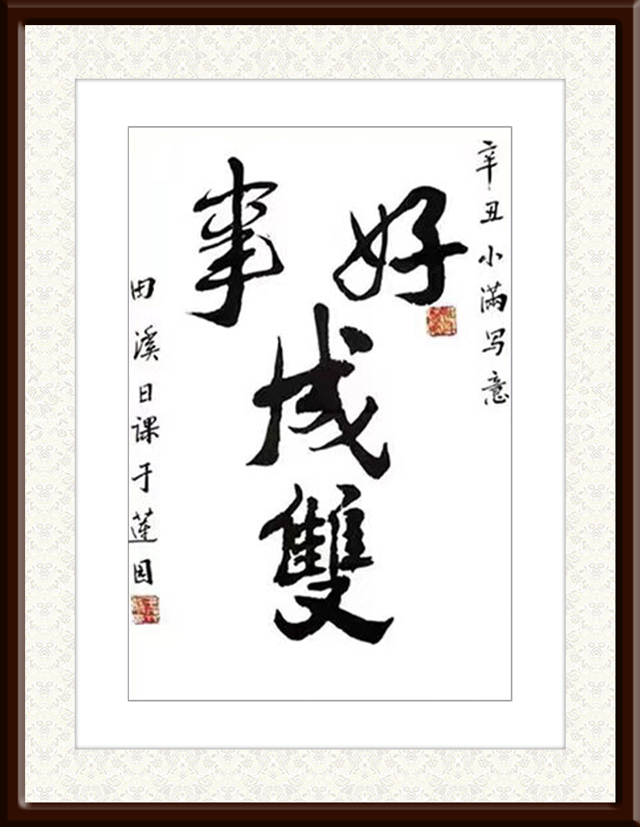 辛丑小满写意
好事
成雙
田溪日课于莲园